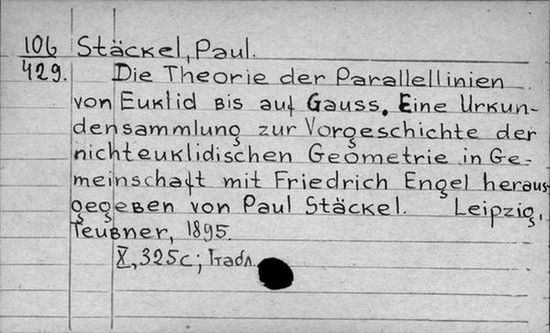 106 Stäckel, Paul.
429. Die Theorie der Parallellinien
von Euklid bis auf Gauss. Eine Urkun-
densammlung zur Vorgeschichte der
nichteuklidischen Geometrie in Ge-
meinschaft mit Friedrich Engel heraus
gegeben von Paul Stäckel. Leipzig,
Teubner, 1895.
X, 325c;